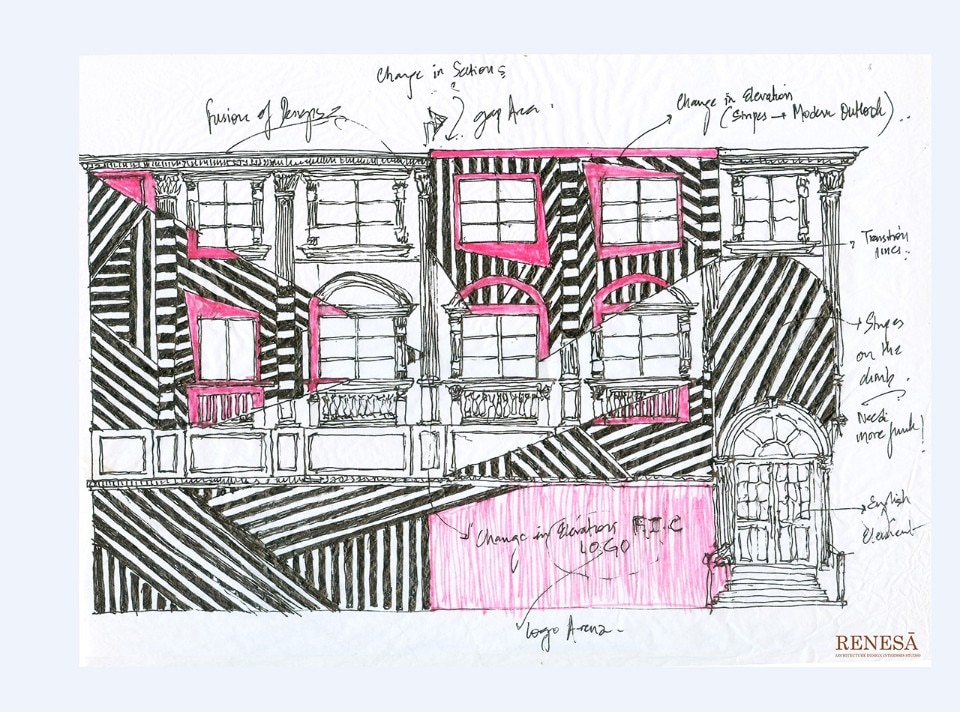 Change in Sections
Fusion of
gap Area.
Change in Elevation
(Stripes → Modern Outlook)..
Transition
lines.
Stripes
on the
dumb.
Need
more funk!
English
Element
Change in Elevation
LOGO
Logo Area
RENESĀ
ARCHITECTURE DESIGN INTERIORS STUDIO